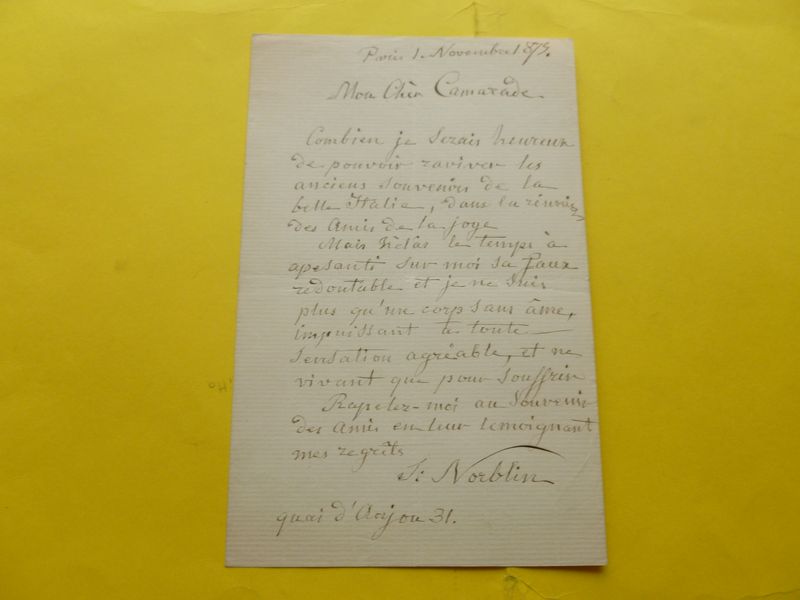 Paris 1. Novembre 1875.
Mon Chèr Camarade.
Combien je serais heureux
de pouvoir raviver les
anciens souvenirs de la
belle Italie, dans la réunion
des Amis de la joye
Mais hélas le temps à
apesanti sur moi sa faux
redoutable et je ne suis
plus qu'un corp sans âme,
impuissant à toute
sensation agréable, et ne
vivant que pour souffrir
Rapelez-moi au Souvenir
des Amis en leur temoignant
mes regrèts
Norblin
quai d'Anjou 31.